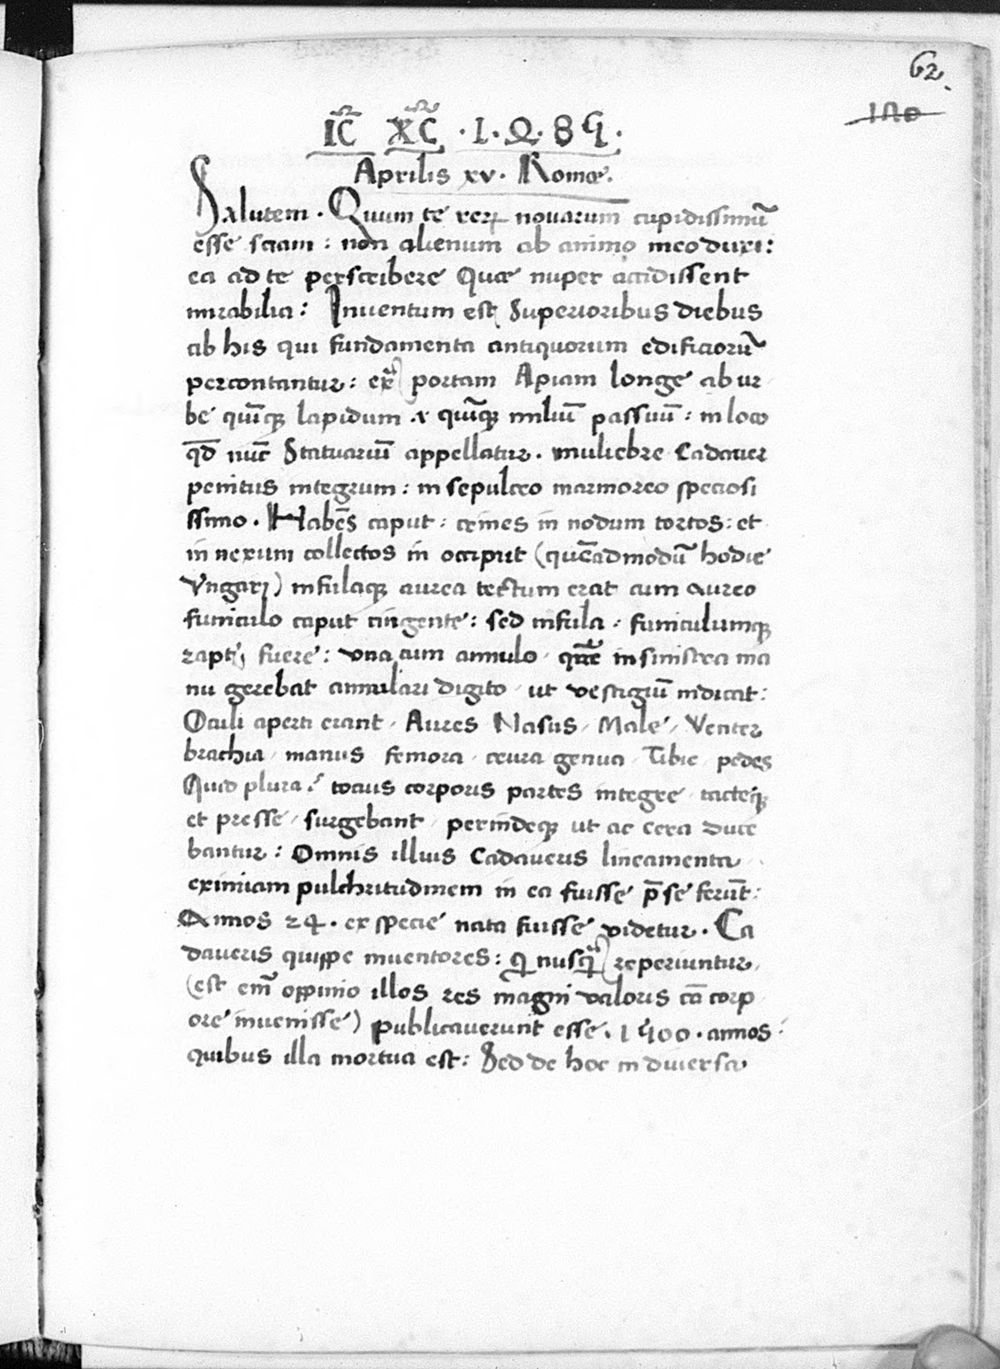 62.
120
IC̄ XC̄ · 1 · 4 · 8 5 ·
Aprilis xv · Romæ.
Salutem · Quum te rerꝝ novarum cupidissimũ
esse sciam : non alienum ab animo meo duxi :
ea ad te perscribere Quæ nuper accidissent
mirabilia : Inuentum est Superioribus diebus
ab his qui fundamenta antiquorum edificiorũ
percontantur : extᵃ portam Apiam longe ab ur
be quīqꝫ lapidum · v quīqꝫ miliū passuū : in loco
qd̄ nūc Statuariū appellatur · muliebre Cadauer
penitus integrum : in sepulcro marmoreo speciosi
ssimo · Habēs caput : crines in nodum tortos : et
in nexum collectos in occiput (quēadmodū hodie
Vngari) infulaqꝫ aurea tectum erat cum aureo
funiculo caput cingente : sed infula · funiculumqꝫ
rapti fuere : una cum annulo · quē in sinistra ma
nu gerebat annulari digito · ut vestigiū indicat :
Oculi aperti erant / Aures Nasus / Male / Venter
brachia / manus femora / crura genua / Tibie / pedes
Quid plura ? totius corporis partes integre / tacteqꝫ
et presse / surgebant / perindeqꝫ ut ac cera duce
bantur : Omnis illius Cadaueris lineamenta
eximiam pulchritudinem in ea fuisse p̄ se ferūt :
Annos 24 · ex specie nata fuisse videtur · Ca
daueris quippe inuentores : qui nusqᵃ reperiuntur,
(est em̄ oppinio illos res magni valoris cū corp
ore inuenisse) publicauerunt esse · 1500 · annos
quibus illa mortua est : Sed de hoc in diuersa